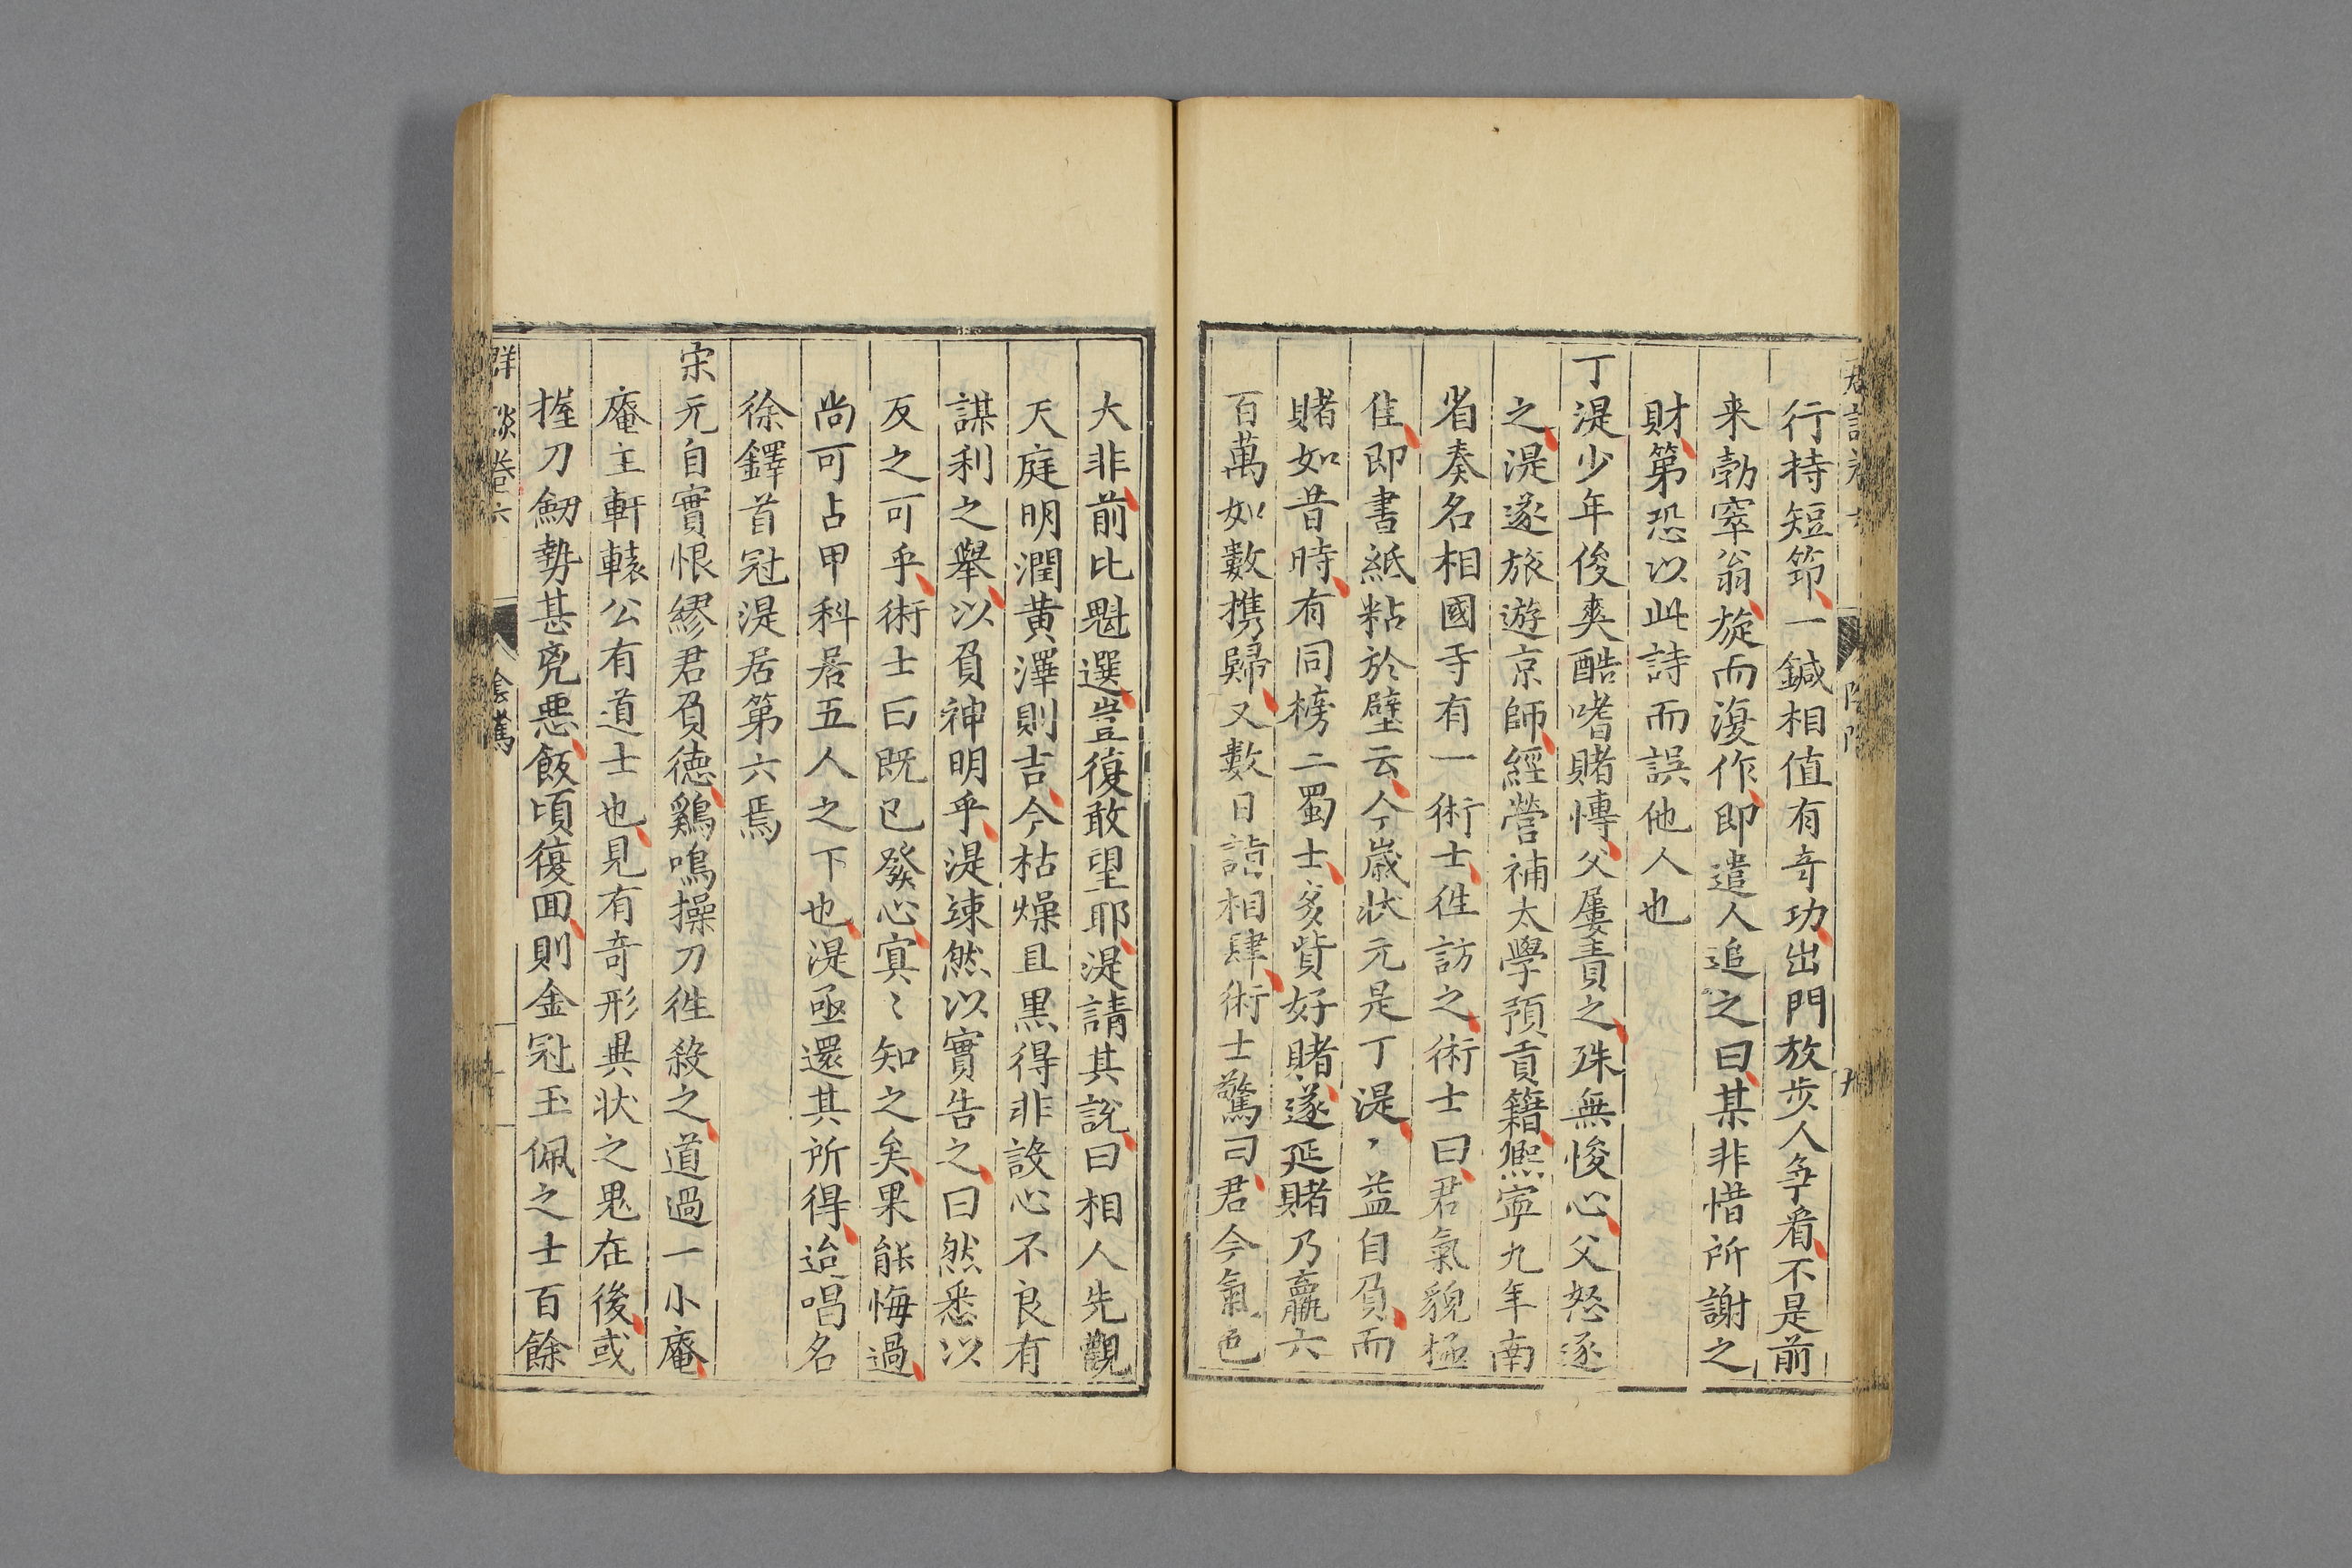 行持短節一鍼相值有奇功出門放步人爭看不是前
来勃窣翁旋而復作即遣人追之曰某非惜所謝之
財第恐以此詩而誤他人也
丁湜少年俊爽酷嗜賭愽父屢責之殊無悛心父怒逐
之湜遂旅遊京師經營補太學預貢籍熈寧九年南
省奏名相國寺有一術士徃訪之術士曰君氣貌極
佳即書紙粘於壁云今歲状元是丁湜〻益自負而
賭如昔時有同榜二蜀士多貲好賭遂延賭乃贏六
百萬如數携歸又數日詣相肆術士驚曰君今氣色
大非前比魁選豈復敢望耶湜請其說曰相人先觀
天庭明潤黄澤則吉今枯燥且黒得非設心不良有
謀利之舉以負神明乎湜竦然以實告之曰然悉以
反之可乎術士曰既已發心寘〻知之矣果能悔過
尚可占甲科居五人之下也湜亟還其所得迨唱名
徐鐸首冠湜居第六焉
宋元自實恨繆君負德鷄鳴操刀徃殺之道過一小庵
庵主軒轅公有道士也見有奇形異状之鬼在後或
握刀劒勢甚兇悪飯頃復囬則金冠玉佩之士百餘
群談卷六
陰隲